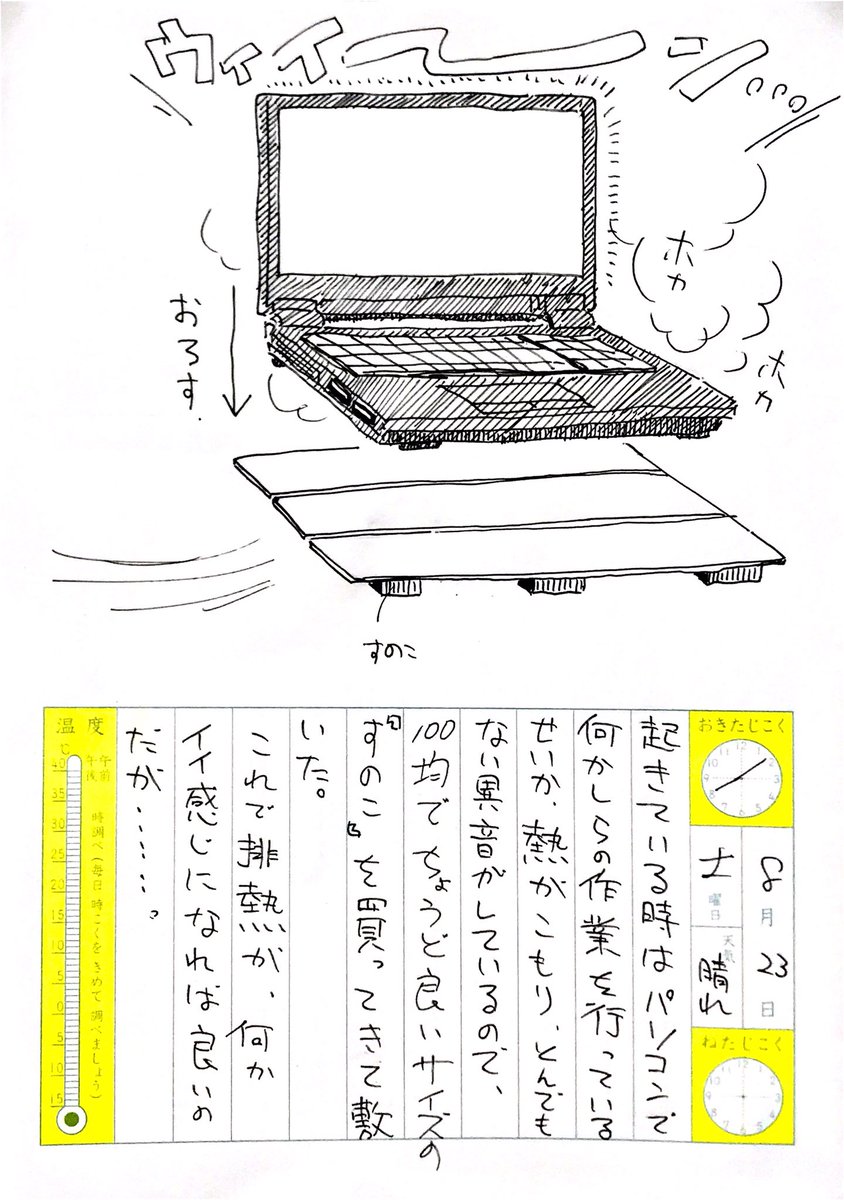 ウィイーン...
ホカ
ホカ
おろす.
すのこ
おきたじこく
8月23日
土曜日
天気
晴れ
ねたじこく
起きている時はパソコンで
何かしらの作業を行っている
せいか、熱がこもり、とんでも
ない異音がしているので、
100均でちょうど良いサイズの
『すのこ』を買ってきて敷
いた。
これで排熱が、何か
イイ感じになれば良いの
だが……。
温度
℃
午前
午後
時調べ(毎日時こくをきめて調べましょう)
40
35
30
25
20
15
10
5
0
5
10
15